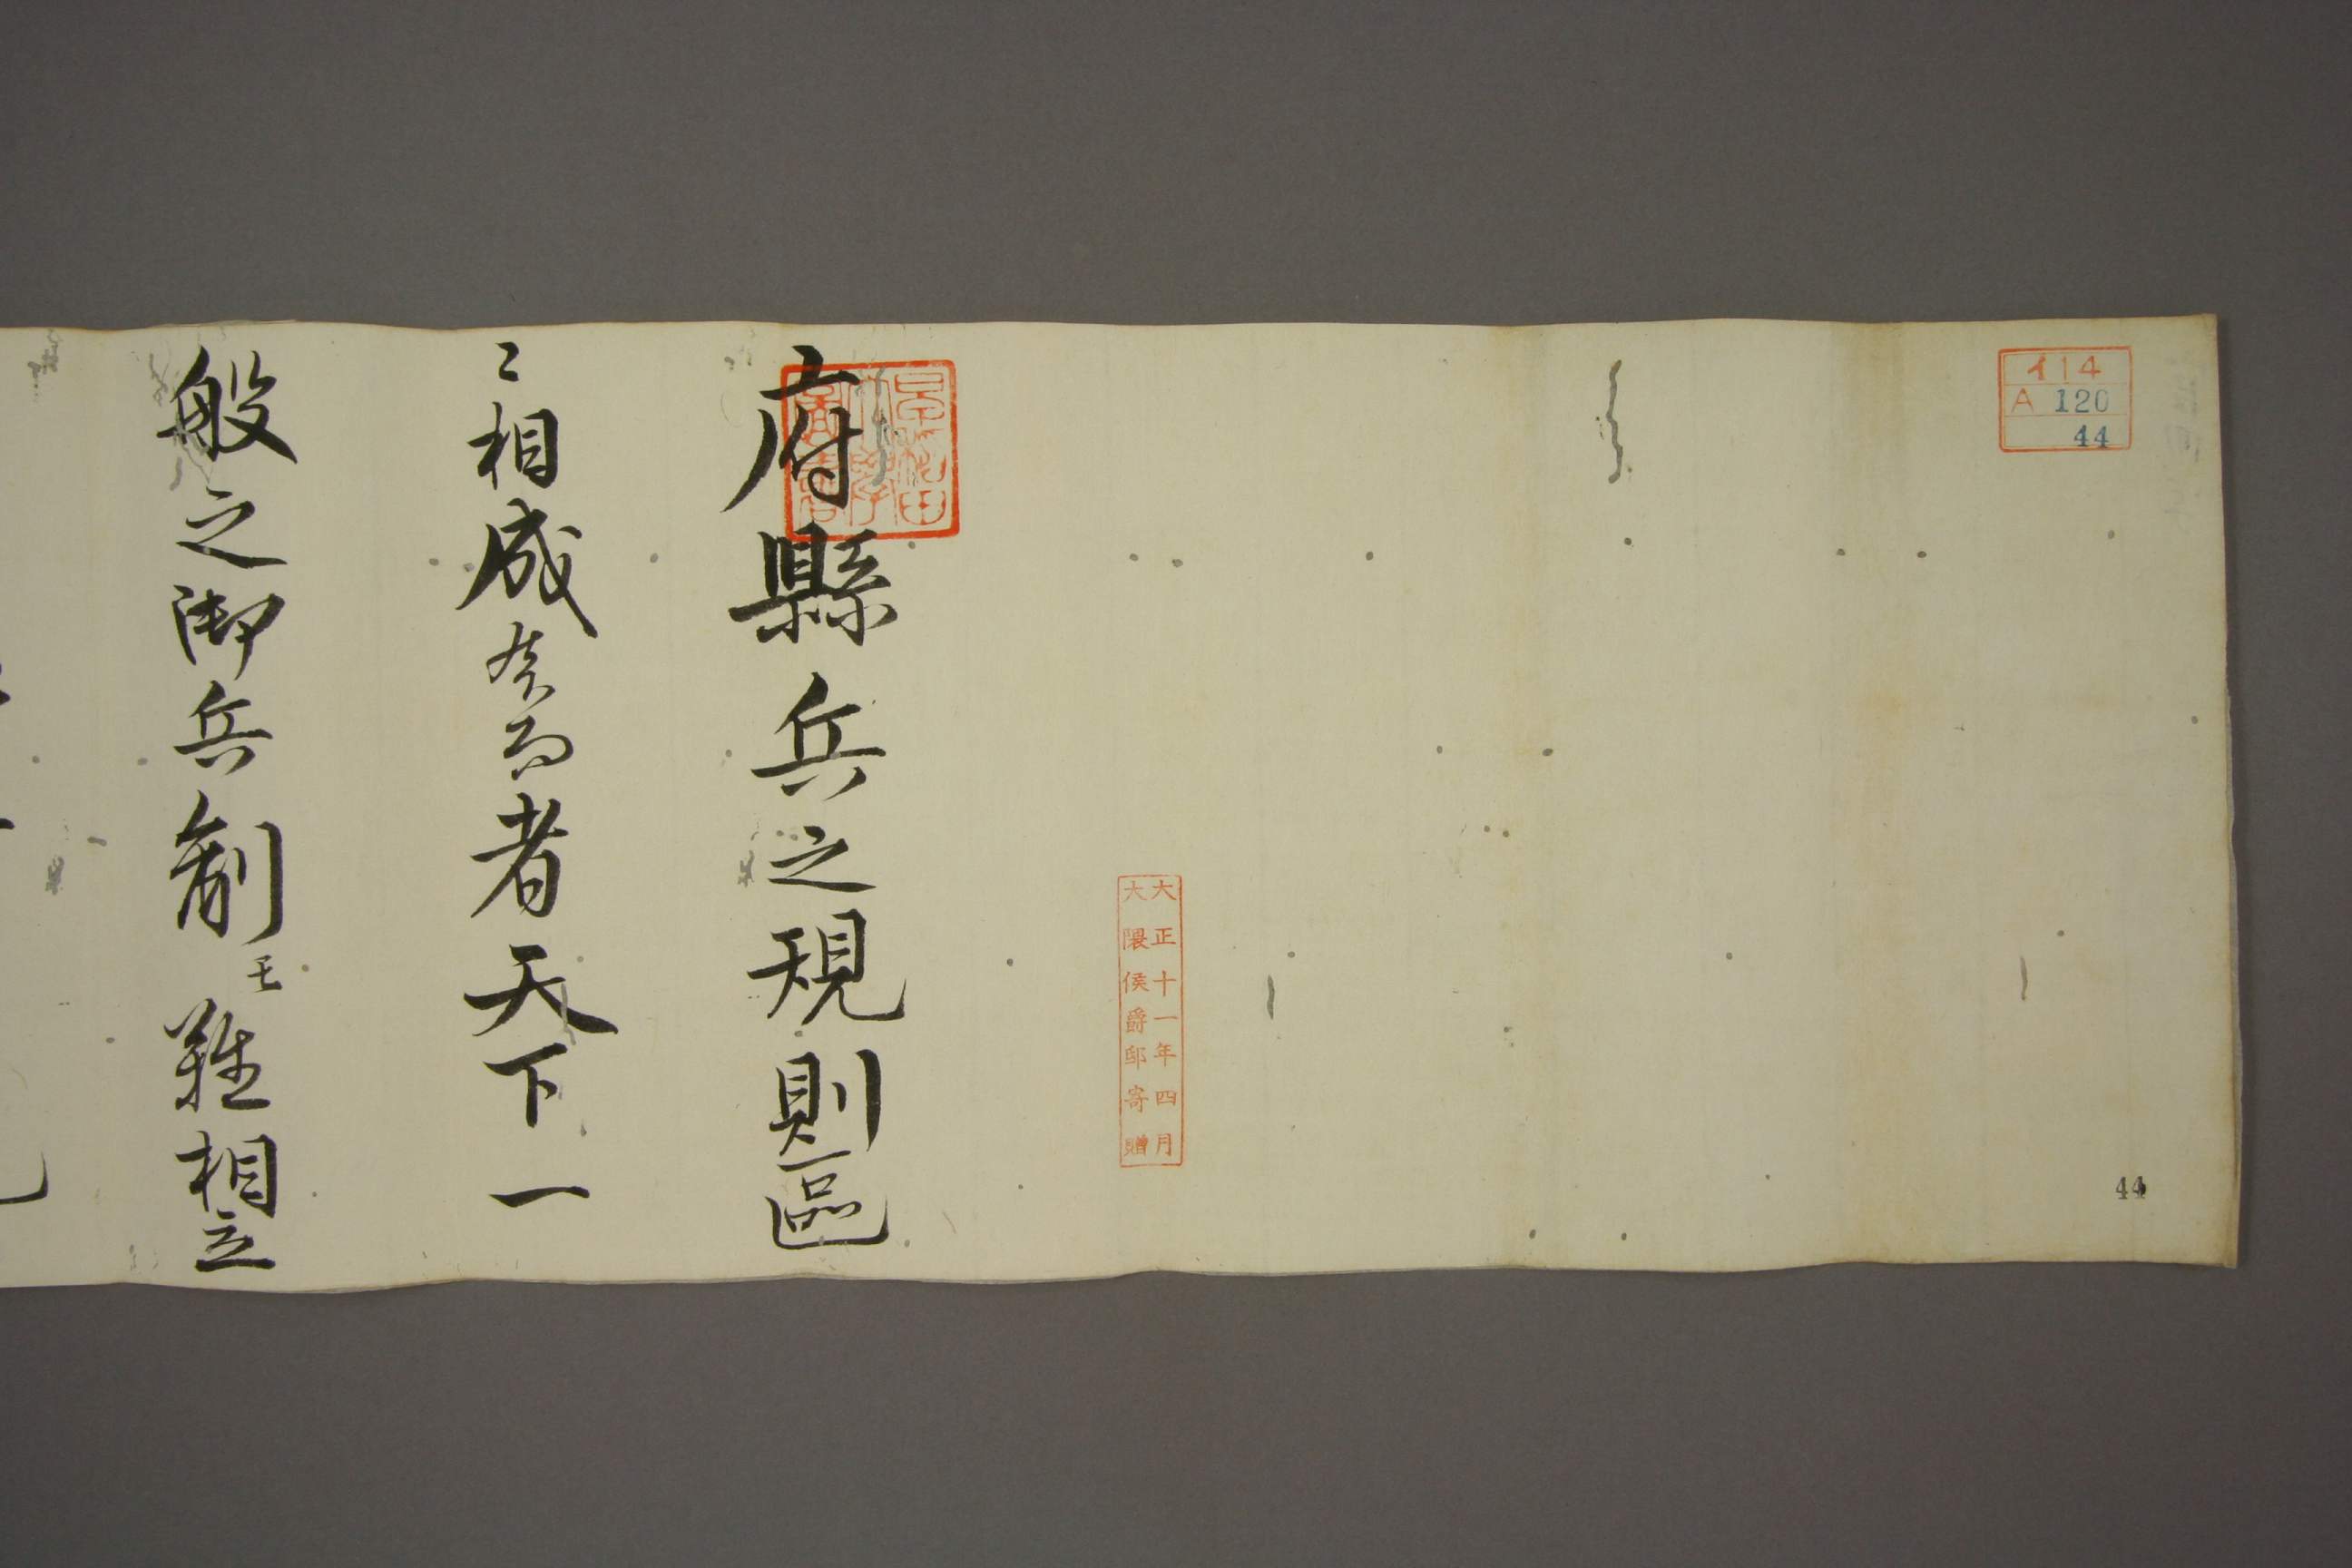 イ14
A 120
44
44
大正十一年四月
大隈侯爵邸寄贈
早稲田
大學
圖書
府縣兵之規則區
々相成候而者天下一
般之御兵制モ難相立